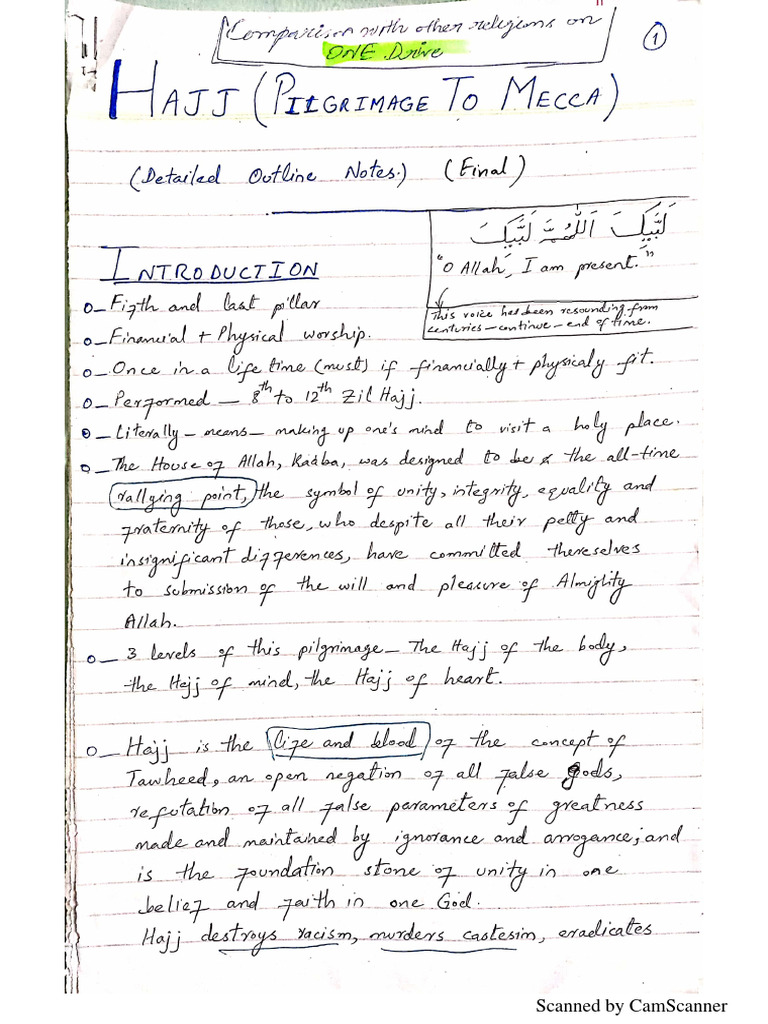 Comparison with other religions on
ONE Drive
1
HAJJ (PILGRIMAGE TO MECCA)
(Detailed Outline Notes.) (Final)
لَبَّيكَ اَللّٰهُمَّ لَبَّيكَ
"O Allah, I am present."
This voice has been resounding from
centuries — continue — end of time.
INTRODUCTION
o_ Fifth and last pillar
o_ Financial + Physical worship.
o_ Once in a life time (must) if financially + physicaly fit.
o_ Performed — 8th to 12th Zil Hajj.
o_ Literally — means — making up one's mind to visit a holy place.
o_ The House of Allah, Kaaba, was designed to be the all-time
rallying point, the symbol of unity, integrity, equality and
fraternity of those, who despite all their petty and
insignificant differences, have committed thereselves
to submission of the will and pleasure of Almighty
Allah.
o_ 3 levels of this pilgrimage — The Hajj of the body,
the Hajj of mind, the Hajj of heart.
o_ Hajj is the life and blood of the concept of
Tawheed, an open negation of all false gods,
refutation of all false parameters of greatness
made and maintained by ignorance and arrogance; and
is the foundation stone of unity in one
belief and faith in one God.
Hajj destroys racism, murders castesim, eradicates
Scanned by CamScanner